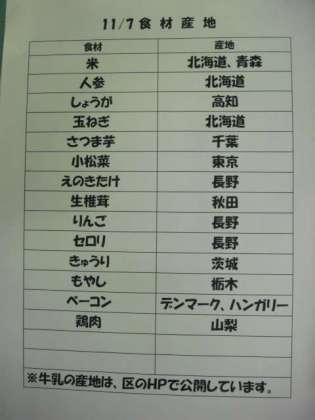 11/7 食 材 産 地
食材 産地
米 北海道、青森
人参 北海道
しょうが 高知
玉ねぎ 北海道
さつま芋 千葉
小松菜 東京
えのきたけ 長野
生椎茸 秋田
りんご 長野
セロリ 長野
きゅうり 茨城
もやし 栃木
ベーコン デンマーク、ハンガリー
鶏肉 山梨
※牛乳の産地は、区のHPで公開しています。